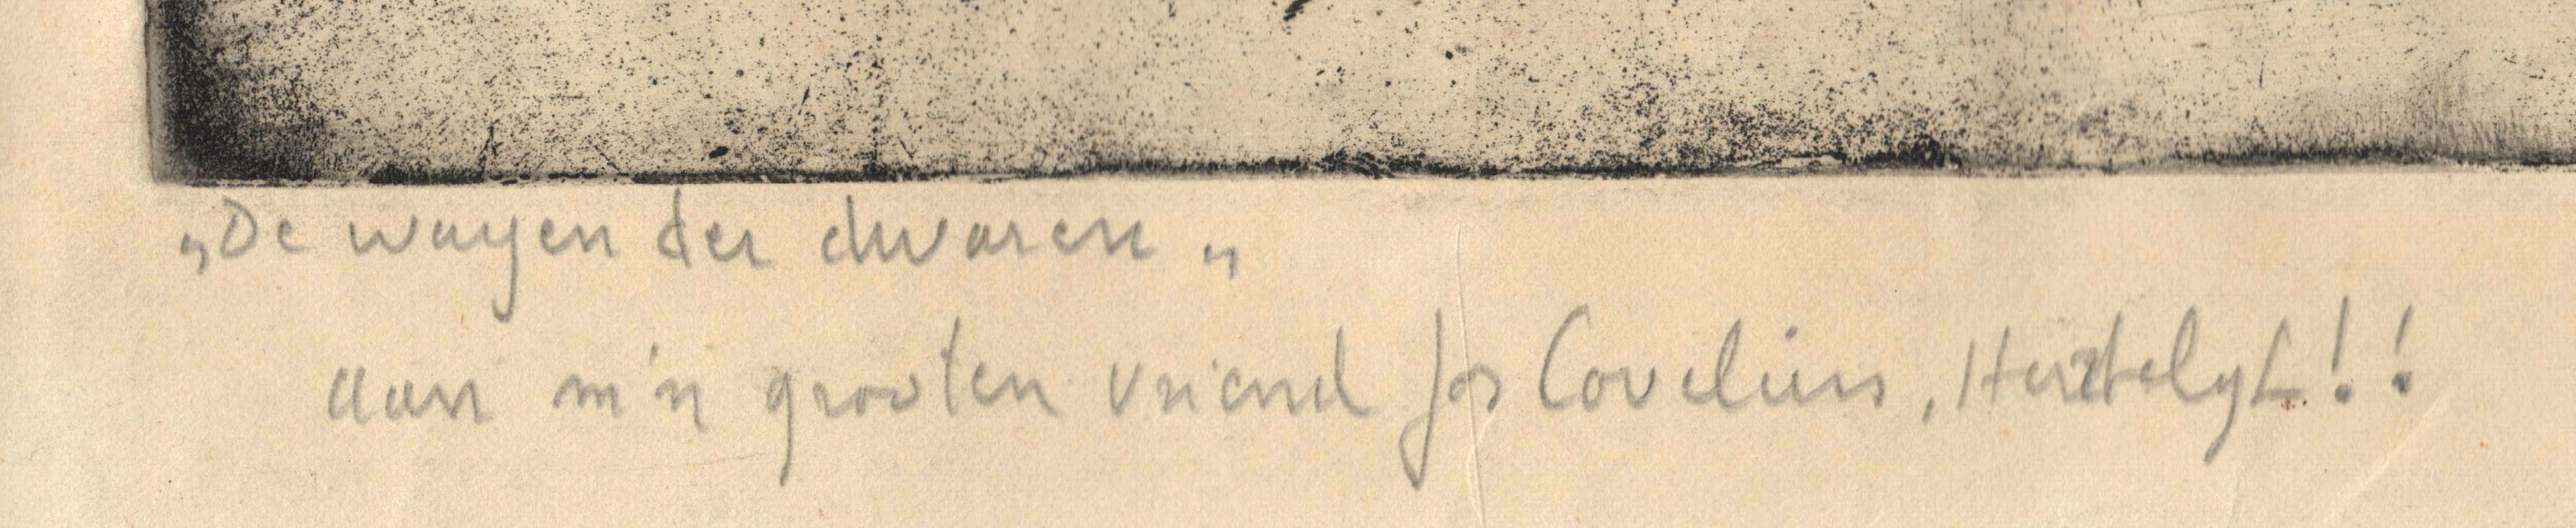 „De wagen der dwazen„
aan m'n grooten vriend Jos Coveliers, Hertelyk!!